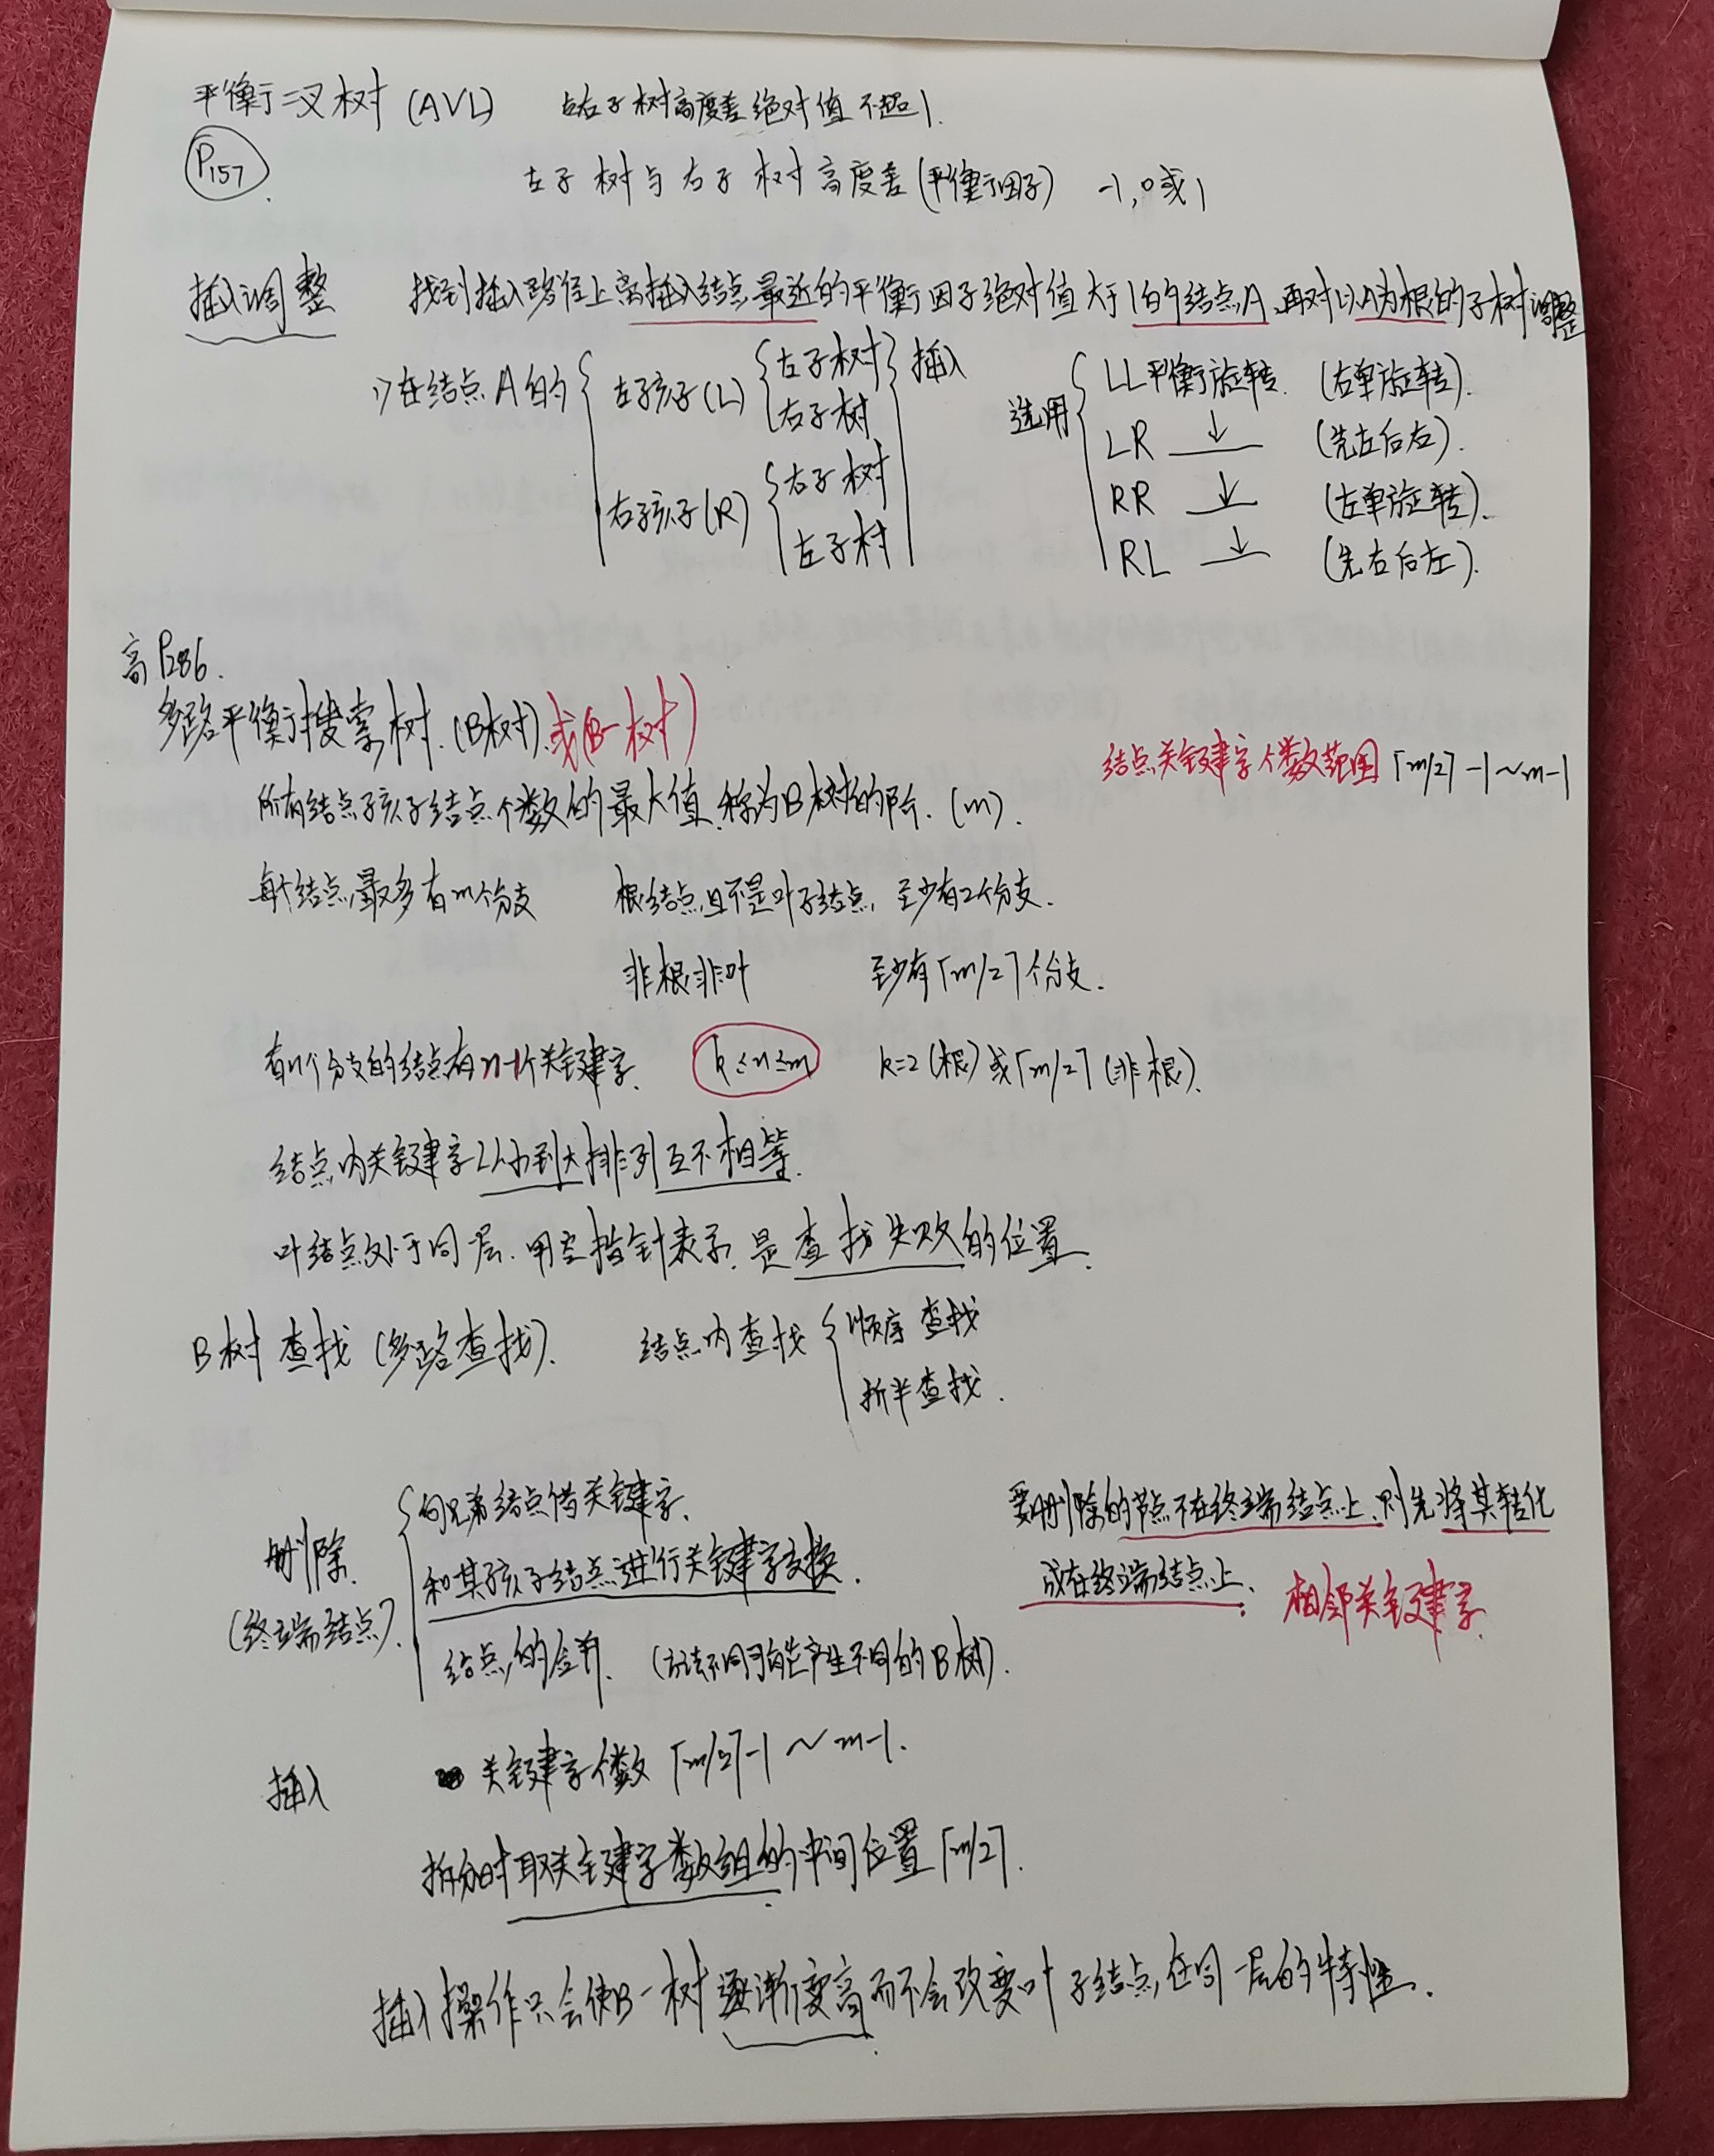 平衡二叉树(AVL) 左右子树高度差绝对值不超1.
P157. 左子树与右子树高度差(平衡因子) -1,0或1
插入调整 找到插入路径上离插入结点最近的平衡因子绝对值大于1的结点A,再对以A为根的子树调整
1)在结点A的 左孩子(L) 左子树 插入 选用 LL平衡旋转. (右单旋转).
右子树 LR ↓ (先左后右).
右孩子(R) 右子树 RR ↓ (左单旋转).
左子树 RL ↓ (先右后左).
高P286.
多路平衡搜索树.(B树).或(B-树)
结点关键字个数范围⌈m/2⌉-1~m-1
所有结点孩子结点个数的最大值,称为B树的阶.(m).
每个结点最多有m个分支 根结点且不是叶子结点, 至少有2个分支.
非根非叶 至少有⌈m/2⌉个分支.
有n个分支的结点有n-1个关键字. k≤n≤m k=2(根)或⌈m/2⌉(非根).
结点内关键字从小到大排列互不相等.
叶结点处于同一层.用空指针表示,是查找失败的位置.
B树查找(多路查找). 结点内查找 顺序查找
折半查找.
删除(终端结点). 向兄弟结点借关键字.
和其孩子结点进行关键字交换.
结点的合并. (方法不同可能产生不同的B树).
要删除的节点不在终端结点上,则先将其转化
成在终端结点上. 相邻关键字.
插入 关键字个数⌈m/2⌉-1~m-1.
拆分时取关键字数组的中间位置⌈m/2⌉.
插入操作只会使B-树逐渐变高而不会改变叶子结点在同一层的特性.